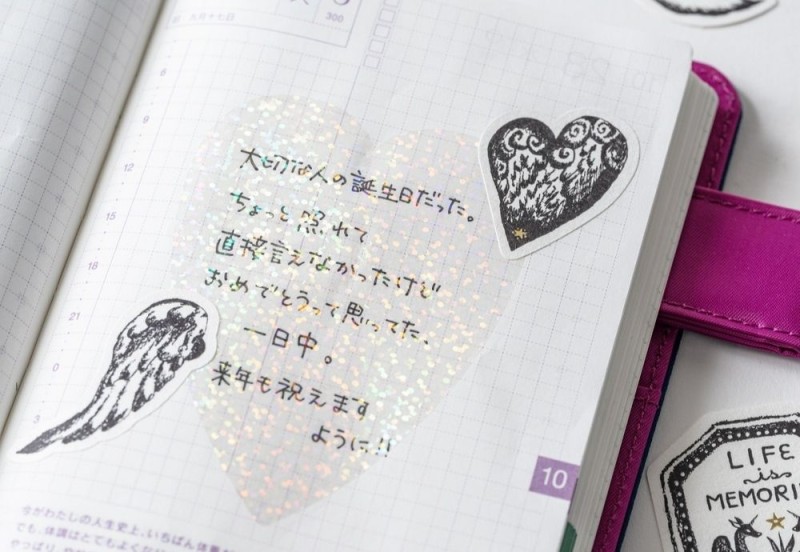 大安十七日
300
6
9
12
15
18
21
0
3
大切な人の誕生日だった。
ちょっと照れて
直接言えなかったけど
おめでとうって思ってた、
一日中。
来年も祝えます
ように!!
10
今がわたしの人生史上、いちばん体重が
でも、体調はとてもよくな
LIFE
is